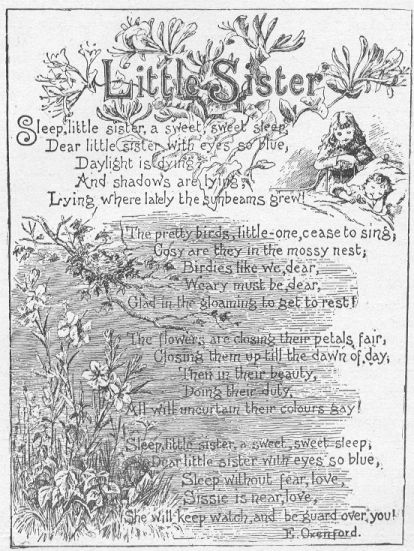 Little Sister
Sleep, little sister, a sweet, sweet sleep,
Dear little sister with eyes so blue,
Daylight is dying;
And shadows are lying;
Lying where lately the sunbeams grew!
The pretty birds, little-one, cease to sing;
Cosy are they in the mossy nest;
Birdies like we, dear,
Weary must be, dear,
Glad in the gloaming to get to rest!
The flowers are closing their petals fair,
Closing them up till the dawn of day;
Then in their beauty,
Doing their duty,
All will uncurtain their colours gay!
Sleep, little sister, a sweet, sweet sleep;
Dear little sister with eyes so blue,
Sleep without fear, love,
Sissie is near, love,
She will keep watch, and be guard over you!
E. Oxenford.